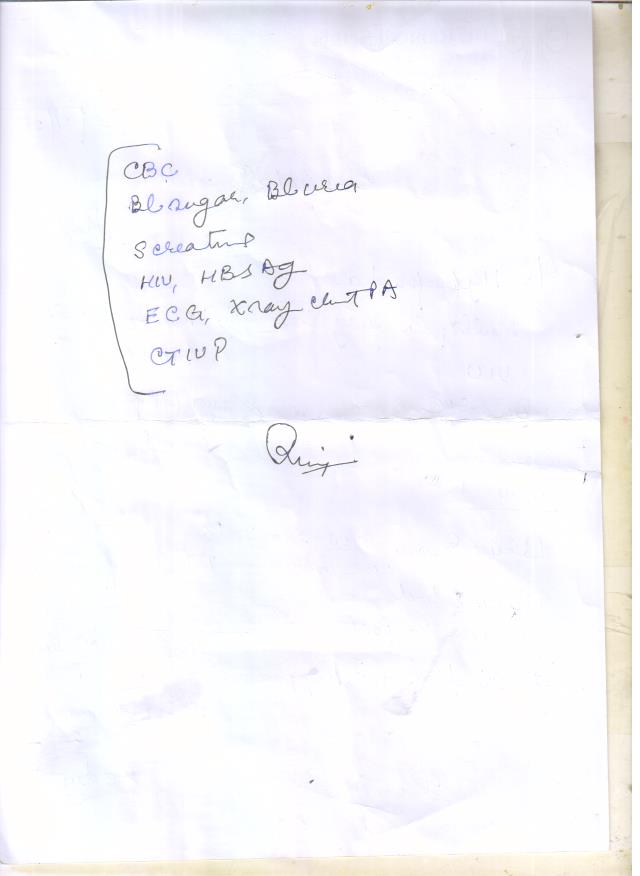 CBC
Bl sugar, Bl urea
S creatinine
HIV, HBSAg
ECG, Xray chest PA
CT IVP